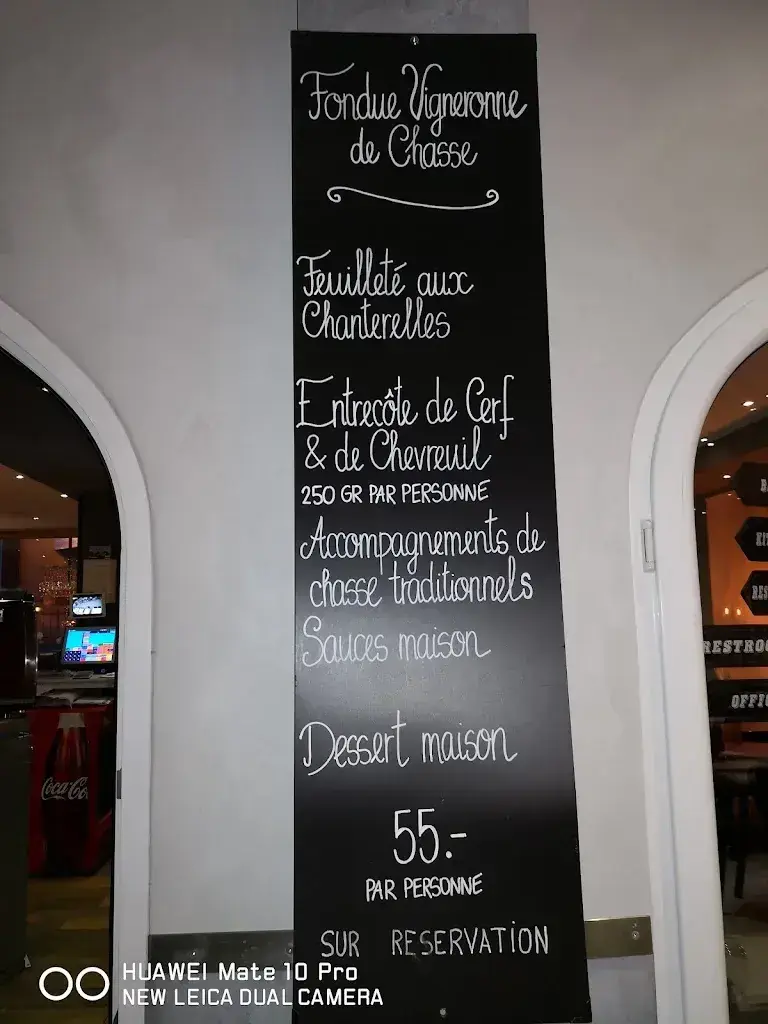 Fondue Vigneronne
de Chasse
Feuilleté aux
Chanterelles
Entrecôte de Cerf
& de Chevreuil
250 GR PAR PERSONNE
Accompagnements de
chasse traditionnels
Sauces maison
Dessert maison
55.-
PAR PERSONNE
SUR RESERVATION
Coca-Co
RESTROO
OFFIC
HUAWEI Mate 10 Pro
NEW LEICA DUAL CAMERA